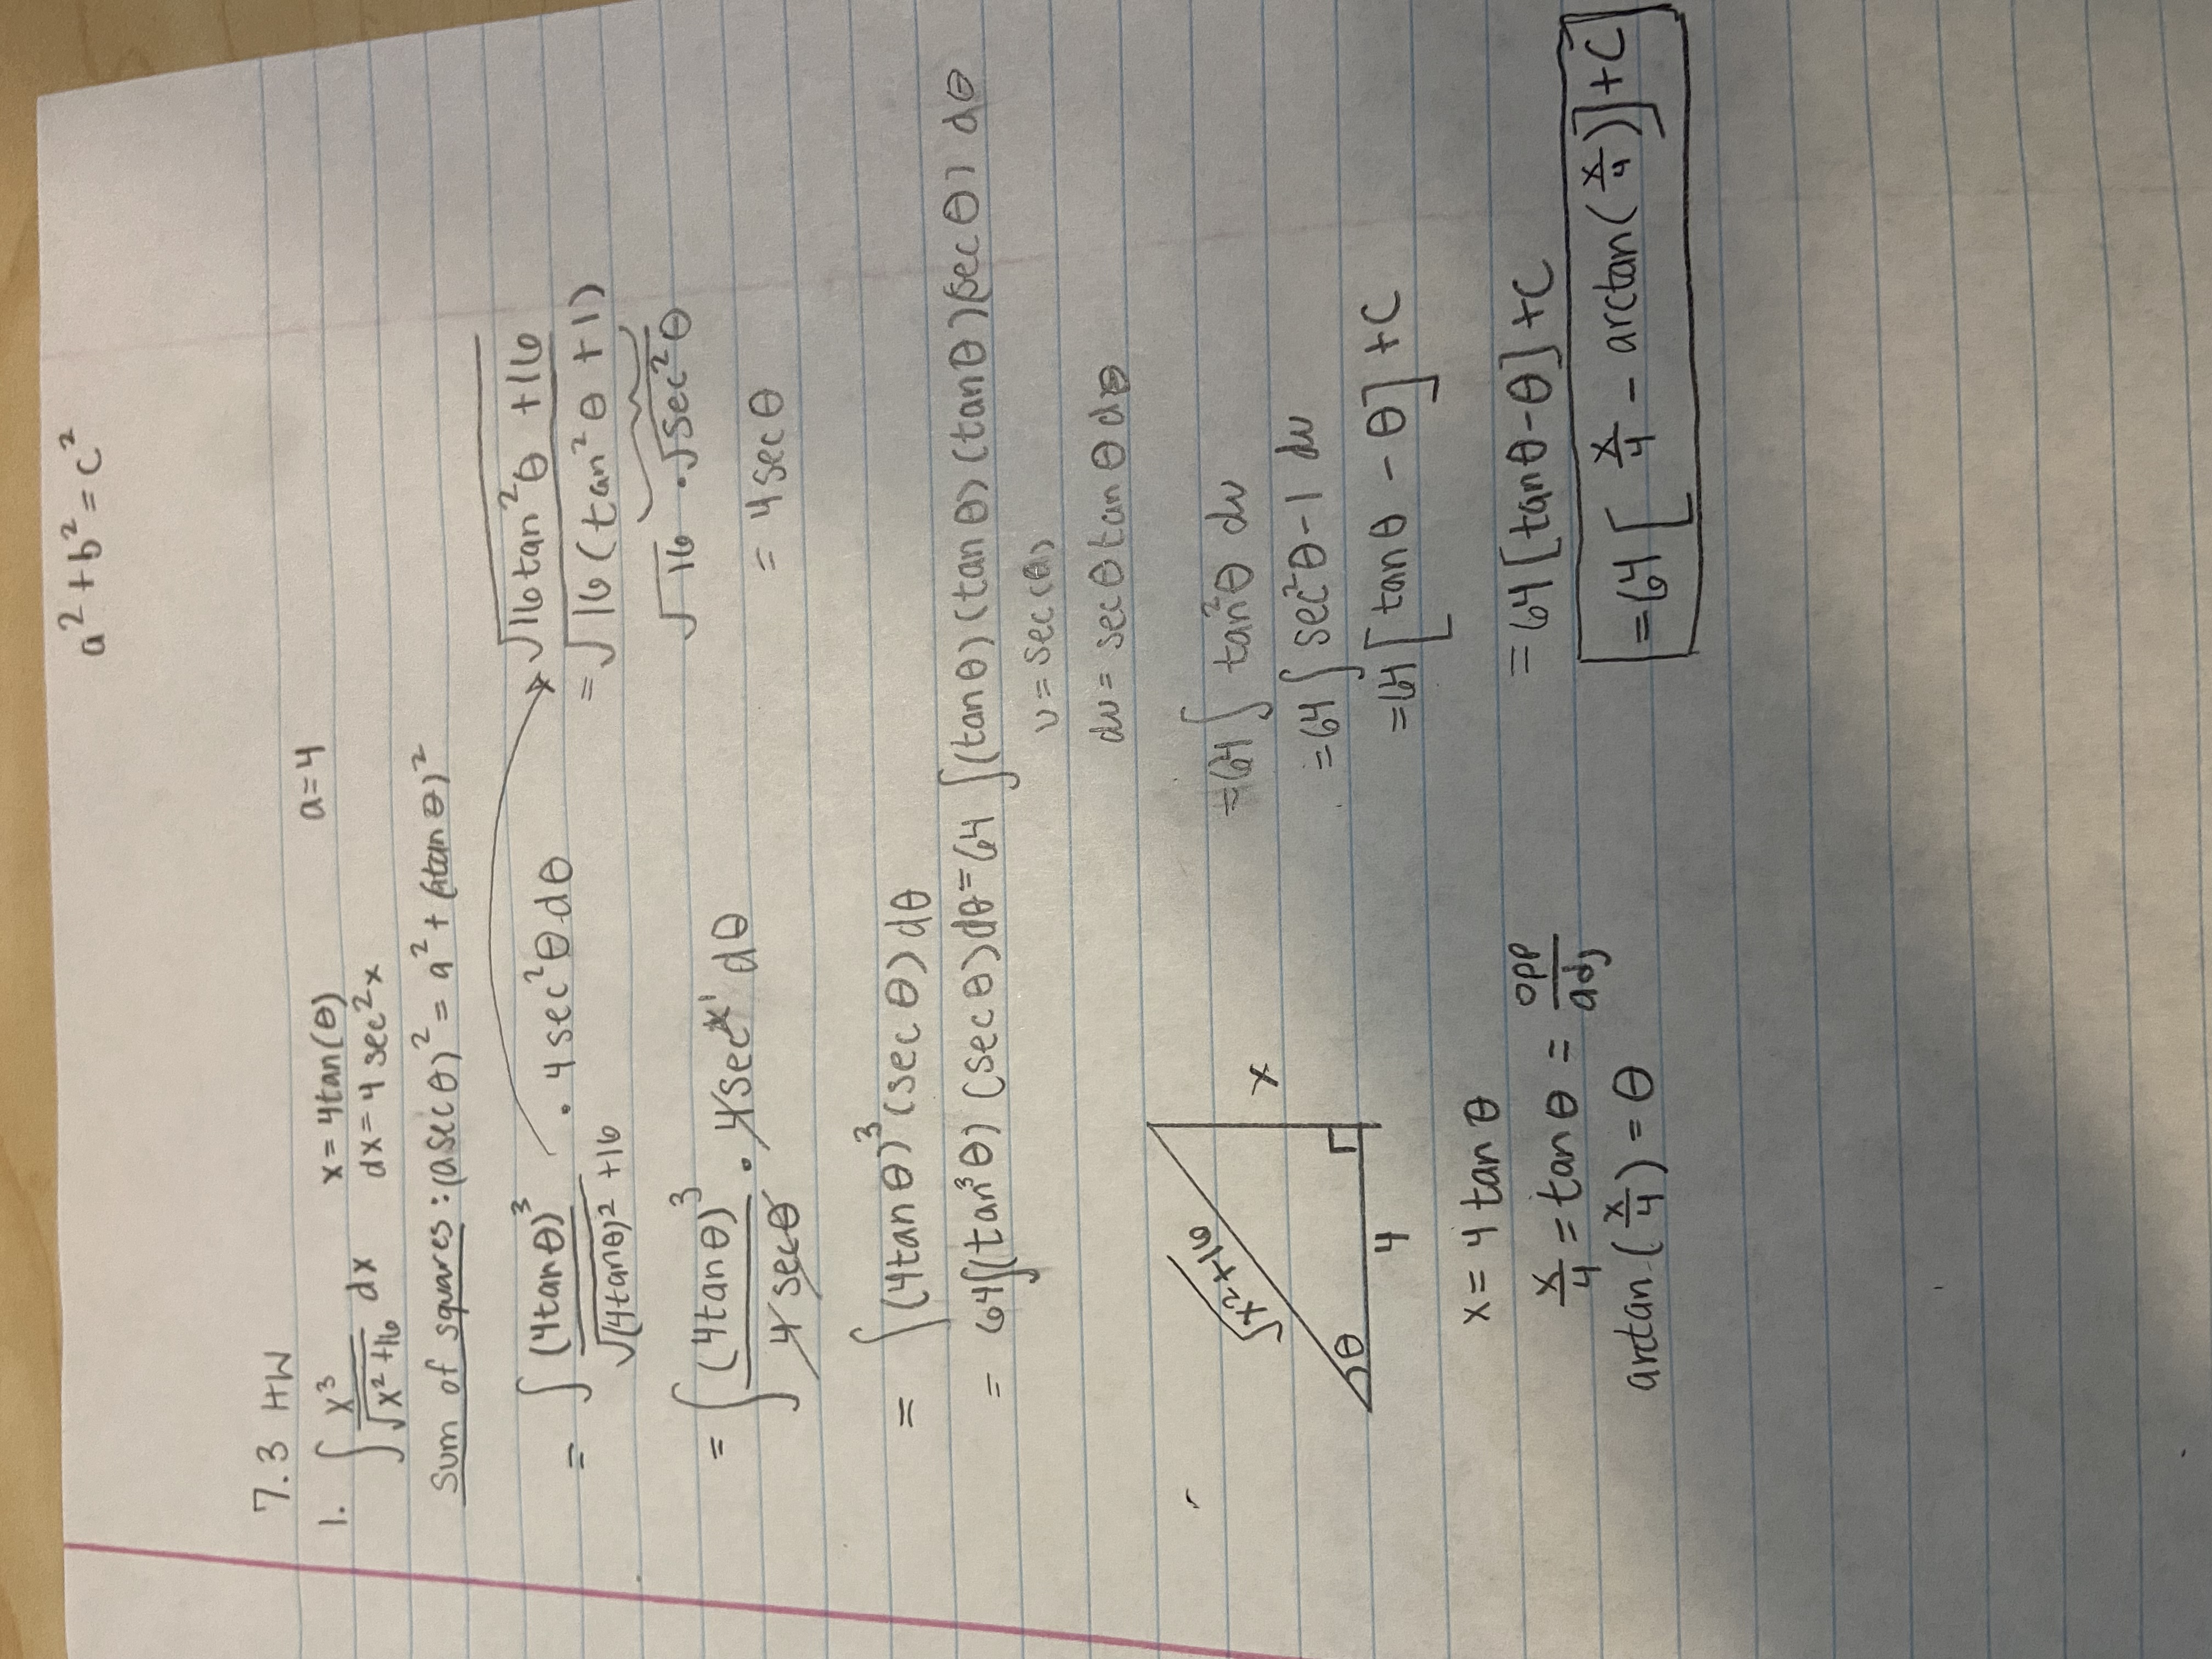 a² + b² = c²
7.3 HW
1. ∫ x³/√(x²+16) dx x = 4tan(θ) a = 4
dx = 4 sec²x
Sum of squares: (a sec θ)² = a² + (a tan θ)²
= ∫ (4tanθ)³/√((4tanθ)²+16) · 4 sec²θ dθ → √(16tan²θ + 16)
= √(16(tan²θ + 1))
√16 · √(sec²θ)
= ∫ (4tanθ)³/(4 secθ) · 4 sec²θ dθ = 4 sec θ
= ∫ (4tanθ)³ (sec θ) dθ
= 64∫(tan³θ) (sec θ) dθ = 64 ∫(tanθ)(tanθ)(tanθ)(sec θ) dθ
u = sec(θ)
du = sec θ tan θ dθ
√(x²+16) x
θ 4
= 64 ∫ tan²θ du
= 64 ∫ sec²θ - 1 du
= 64 [tanθ - θ] + C
x = 4 tan θ = 64 [tanθ - θ] + C
x/4 = tan θ = opp/adj = 64 [x/4 - arctan(x/4)] + C
arctan(x/4) = θ